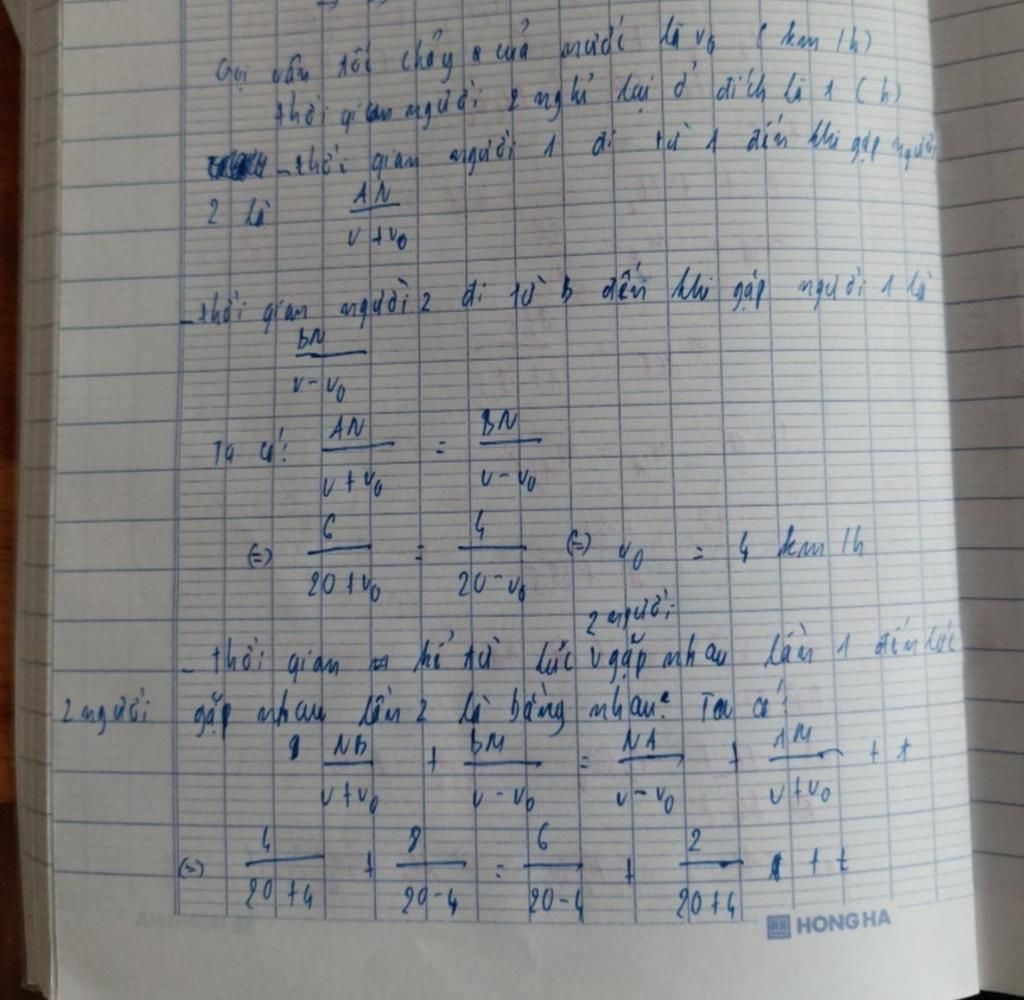 Gọi vận tốc chảy của nước là v₀ (km/h)
thời gian người 2 nghỉ lại ở đích là 1 (h)
- thời gian người 1 đi từ A đến khi gặp người
2 là AN/(v+v₀)
- thời gian người 2 đi từ B đến khi gặp người 1 là
BN/(v-v₀)
Ta có: AN/(v+v₀) = BN/(v-v₀)
(=) 6/(20+v₀) = 4/(20-v₀) (=) v₀ = 4 km/h
2 người
- thời gian kể từ lúc v gặp nhau lần 1 đến lúc
2 người gặp nhau lần 2 là bằng nhau. Ta có:
NB/(v+v₀) + BM/(v-v₀) = NA/(v-v₀) + AM/(v+v₀) + t
(=) 4/(20+4) + 8/(20-4) = 6/(20-4) + 2/(20+4) + t
HONG HA